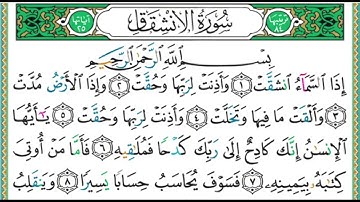 ترتيبها ٨٤ سُورَةُ الانْشِقَاقِ آياتها ٢٥
بِسْمِ اللَّهِ الرَّحْمَٰنِ الرَّحِيمِ
إِذَا السَّمَآءُ انشَقَّتْ ١ وَأَذِنَتْ لِرَبِّهَا وَحُقَّتْ ٢ وَإِذَا الْأَرْضُ مُدَّتْ
٣ وَأَلْقَتْ مَا فِيهَا وَتَخَلَّتْ ٤ وَأَذِنَتْ لِرَبِّهَا وَحُقَّتْ ٥ يَٰٓأَيُّهَا
الْإِنسَٰنُ إِنَّكَ كَادِحٌ إِلَىٰ رَبِّكَ كَدْحًا فَمُلَٰقِيهِ ٦ فَأَمَّا مَنْ أُوتِىَ
كِتَٰبَهُۥ بِيَمِينِهِۦ ٧ فَسَوْفَ يُحَاسَبُ حِسَابًا يَسِيرًا ٨ وَيَنقَلِبُ